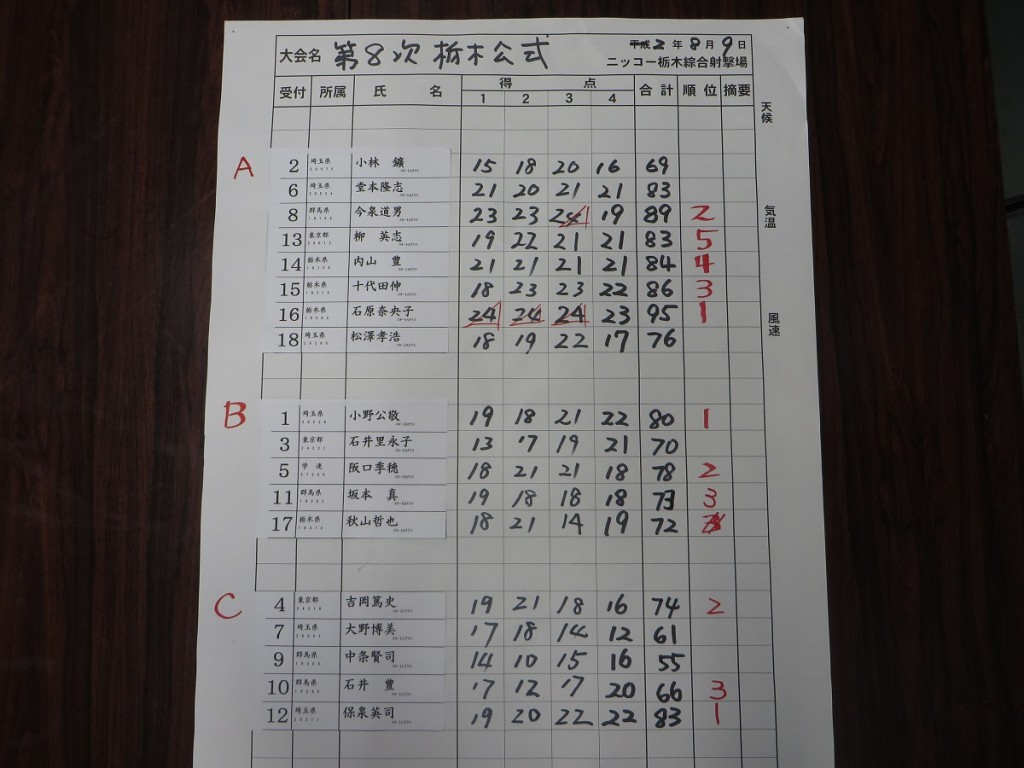 大会名 第8次 栃木公式 平成2年8月9日
ニッコー栃木綜合射撃場
受付 所属 氏 名 得 点 合計 順位 摘要
1 2 3 4
天候
気温
風速
A
2 埼玉県 小林 鑛 15 18 20 16 69
6 埼玉県 堂本隆志 21 20 21 21 83
8 群馬県 今泉道男 23 23 24 19 89 2
13 東京都 柳 英志 19 22 21 21 83 5
14 栃木県 内山 豊 21 21 21 21 84 4
15 栃木県 十代田伸 18 23 23 22 86 3
16 栃木県 石原奈央子 24 24 24 23 95 1
18 埼玉県 松澤孝浩 18 19 22 17 76
B
1 埼玉県 小野公敬 19 18 21 22 80 1
3 東京都 石井里永子 13 17 19 21 70
5 学連 阪口季穂 18 21 21 18 78 2
11 群馬県 坂本 真 19 18 18 18 73 3
17 栃木県 秋山哲也 18 21 14 19 72
C
4 東京都 吉岡篤史 19 21 18 16 74 2
7 埼玉県 大野博美 17 18 14 12 61
9 群馬県 中条賢司 14 10 15 16 55
10 群馬県 石井 豊 17 12 17 20 66 3
12 埼玉県 保泉英司 19 20 22 22 83 1